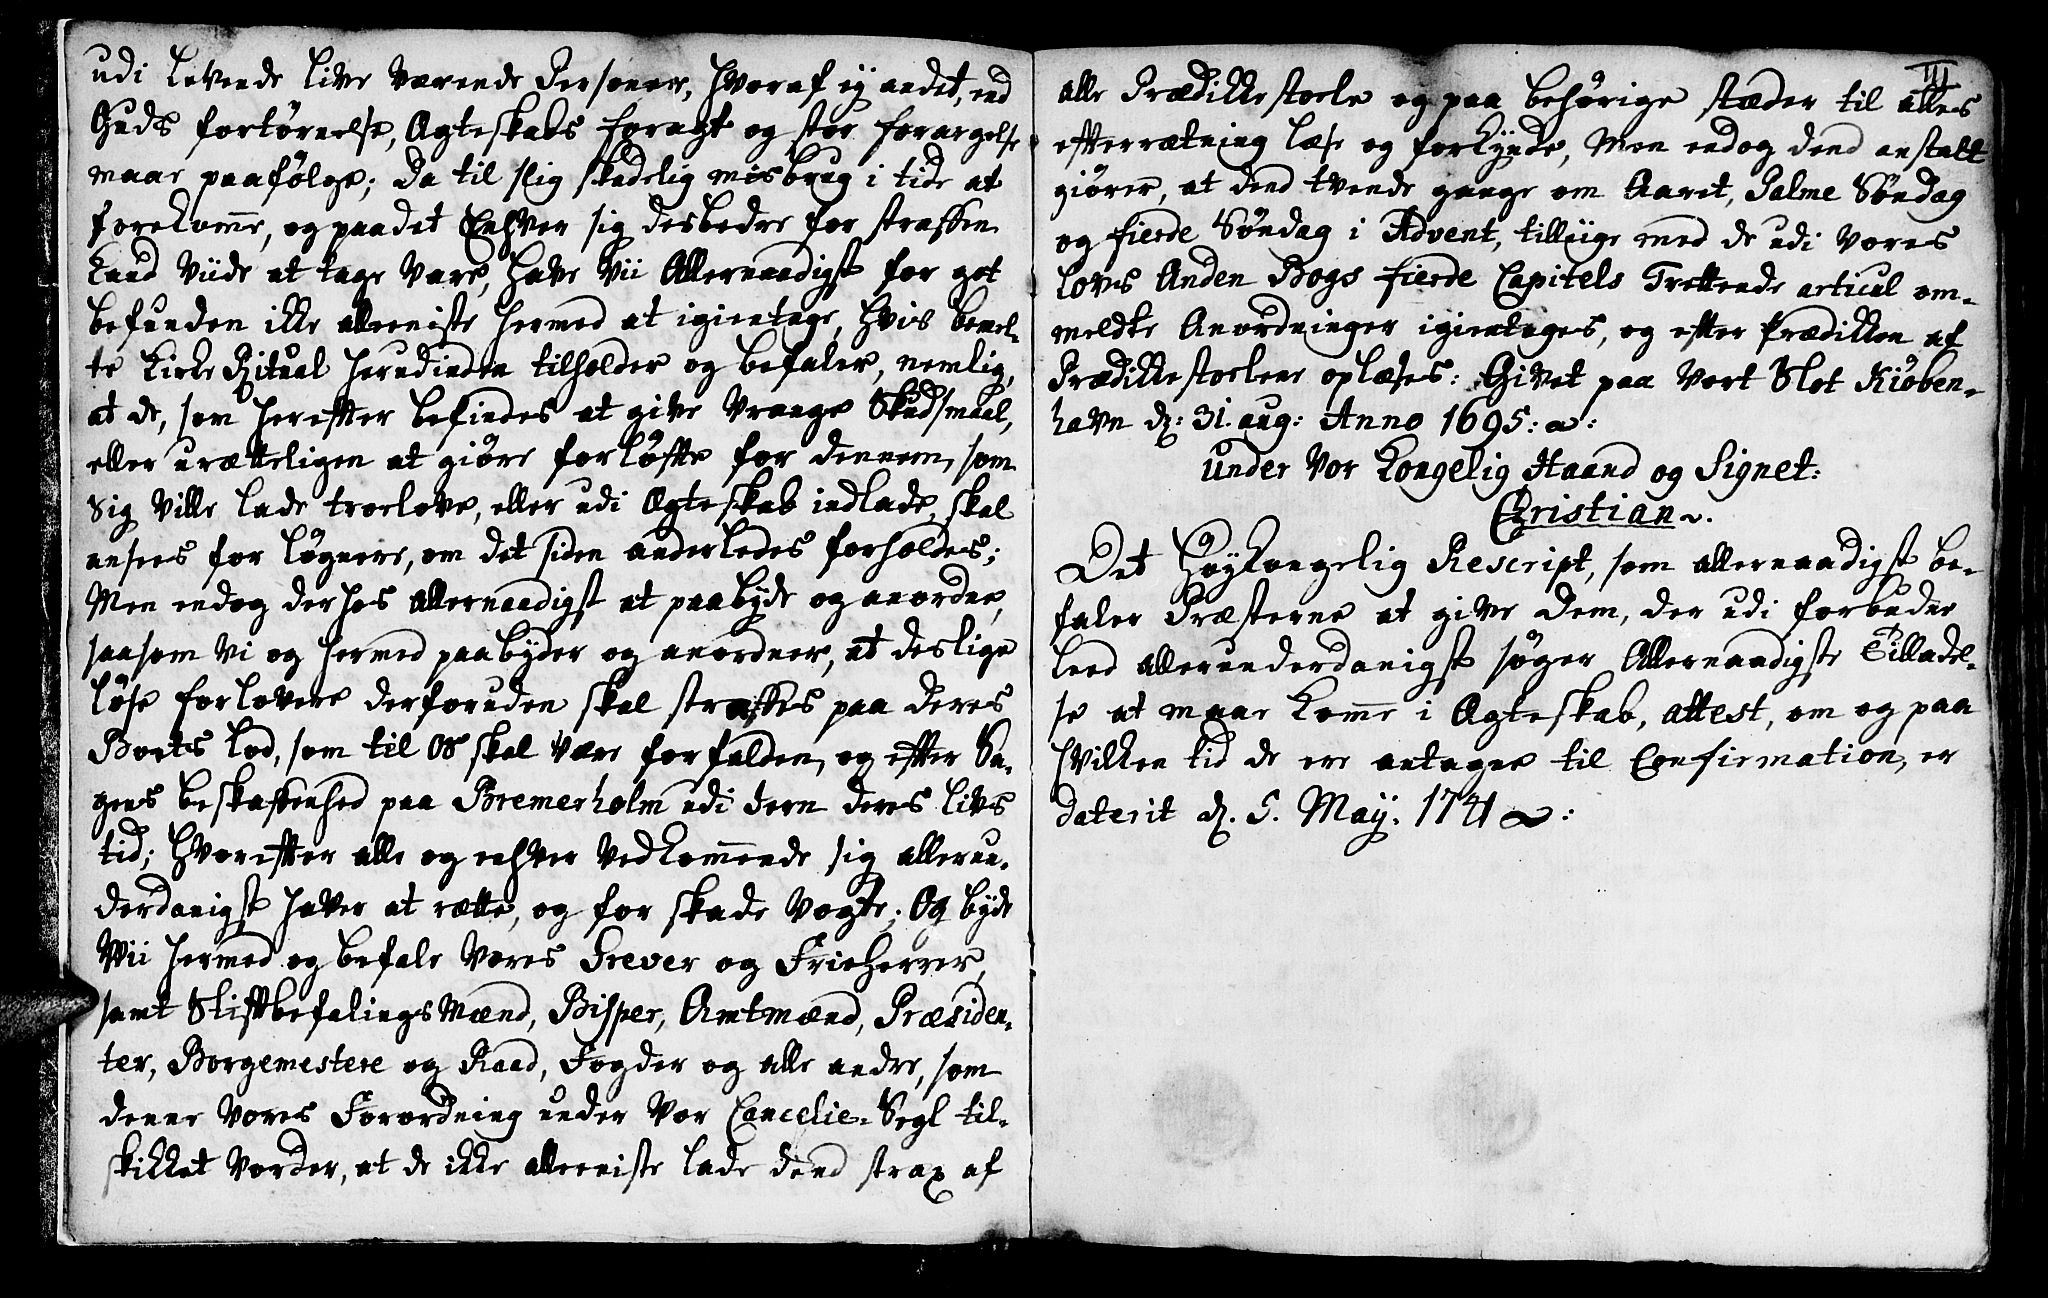 udi Levende Live Værende Personer, hvoraf ey andet, end
Guds fortørnelse, Ægteskabs foragt og stor forargelse
maae paafølge; Da til slig skadelig misbrug i tide at
forekomme, og paadet Enhver sig desbedre for straffen
kand Viide at tage Vare, have Vii Allernaadigst for got
befunden ikke alleeniste hermed at igientage, hvis bemel-
te Kirke Ritual herudinden tilholder og befaler, nemlig,
at de, som herefter befindes at give Vrange Skudsmaal,
eller urætteligen at giøre forløfte for dennem, som
Sig Ville lade troelove, eller udi Ægteskab indlade, skal
ansees for Løgnere, om det siden anderledes forholdes;
Men endog derhos allernaadigst at paabyde og anordne,
saasom Vi og hermed paabyder og anordner, at deslige
løse forlovere derforuden skal straffes paa deres
Boets Lod, som til Os skal være forfalden, og efter Sa-
gens beskaffenhed paa Bremerholm udi deris Livs
tid; hvorefter alle og enhver Vedkommende sig allerun-
derdanigst haver at rætte, og for skade Vogte; Og byde
Wii hermed og befale Vores Grever og Frieherrer,
samt StiftbefalingsMænd, Bisper, Amtmænd, Præsiden-
ter, Borgemestere og Raad, Fogder og alle andre, som
denne Vores Forordning under Vor Cancelie-Segl til-
skikket Vorder, at de ikke alleeniste lade dend strax af
III
alle Prædikkestoele og paa behørige stæder til alles
efterrætning læse og forkynde, Men endog dend anstalt
giører, at dend tvende gange om Aaret, Palme Søndag
og fierde Søndag i Advent, tilliige med de udi Vores
Lovs Anden Bogs fierde Capitels Trettende articul om-
meldte Anordninger igientages, og efter Prædikken af
Prædikkestoelene oplæses: Givet paa Vort Slot Kiøben-
havn d: 31. aug: Anno 1695:
under Vor Kongelig Haand og Signet:
Christian.
Det Høykongelig Rescript, som allernaadigst be-
faler Præsterne at give Dem, der udi forbudne
Leed allerunderdanigst søger Allernaadigste Tilladel-
se at maae komme i Ægteskab, attest, om og paa
hvilken tid de ere antagne til Confirmation, er
daterit d. 5. May. 1741: